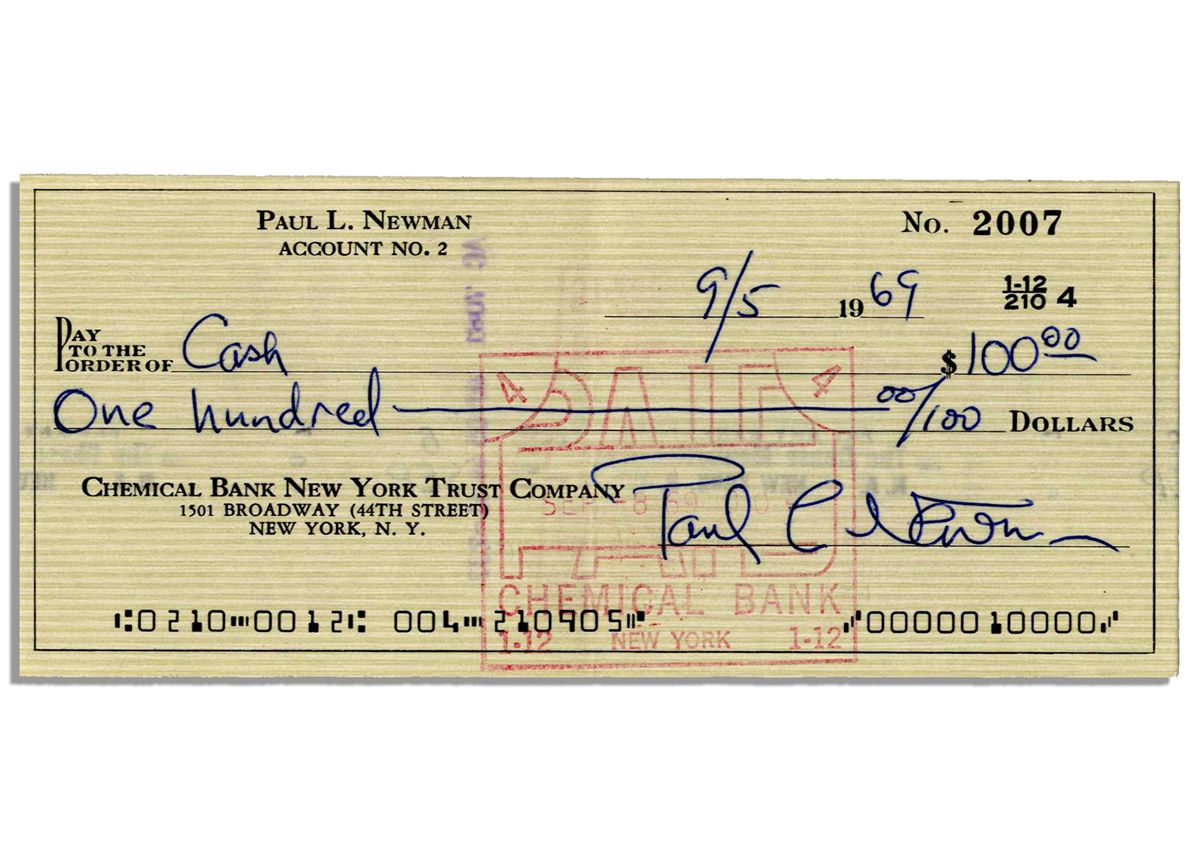 PAUL L. NEWMAN
ACCOUNT NO. 2
No. 2007
9/5 1969
1-12
210 4
PAY TO THE ORDER OF Cash $ 100 00
One hundred 00/100 DOLLARS
CHEMICAL BANK NEW YORK TRUST COMPANY
1501 BROADWAY (44TH STREET)
NEW YORK, N. Y.
Paul L Newman
4 PAID 4
SEP -8 69
PAID
CHEMICAL BANK
1-12 NEW YORK 1-12
⑆0210⑉0012⑆ 004⑉210905⑈ ⑇0000010000⑇